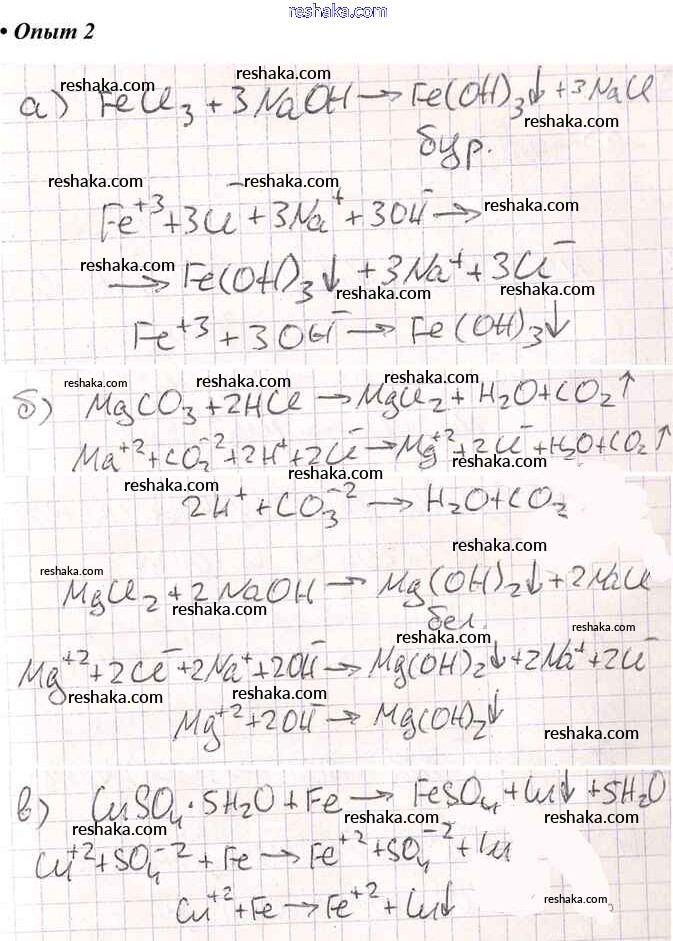 reshaka.com
• Опыт 2
reshaka.com reshaka.com
а) FeCl₃ + 3NaOH → Fe(OH)₃↓ + 3NaCl
reshaka.com
бур.
reshaka.com reshaka.com
Fe⁺³ + 3Cl⁻ + 3Na⁺ + 3OH⁻ →
reshaka.com
→ Fe(OH)₃↓ + 3Na⁺ + 3Cl⁻
reshaka.com reshaka.com
Fe⁺³ + 3OH⁻ → Fe(OH)₃↓
reshaka.com reshaka.com reshaka.com
б) MgCO₃ + 2HCl → MgCl₂ + H₂O + CO₂↑
Ma⁺² + CO₃⁻² + 2H⁺ + 2Cl⁻ → Mg⁺² + 2Cl⁻ + H₂O + CO₂↑
reshaka.com reshaka.com reshaka.com
2H⁺ + CO₃⁻² → H₂O + CO₂
reshaka.com
reshaka.com
MgCl₂ + 2NaOH → Mg(OH)₂↓ + 2NaCl
reshaka.com
бел.
reshaka.com reshaka.com
Mg⁺² + 2Cl⁻ + 2Na⁺ + 2OH⁻ → Mg(OH)₂↓ + 2Na⁺ + 2Cl⁻
reshaka.com reshaka.com
Mg⁺² + 2OH⁻ → Mg(OH)₂↓
reshaka.com
reshaka.com reshaka.com
в) CuSO₄ · 5H₂O + Fe → FeSO₄ + Cu↓ + 5H₂O
reshaka.com reshaka.com reshaka.com
Cu⁺² + SO₄⁻² + Fe → Fe⁺² + SO₄⁻² + Cu
reshaka.com reshaka.com
Cu⁺² + Fe → Fe⁺² + Cu↓
reshaka.com